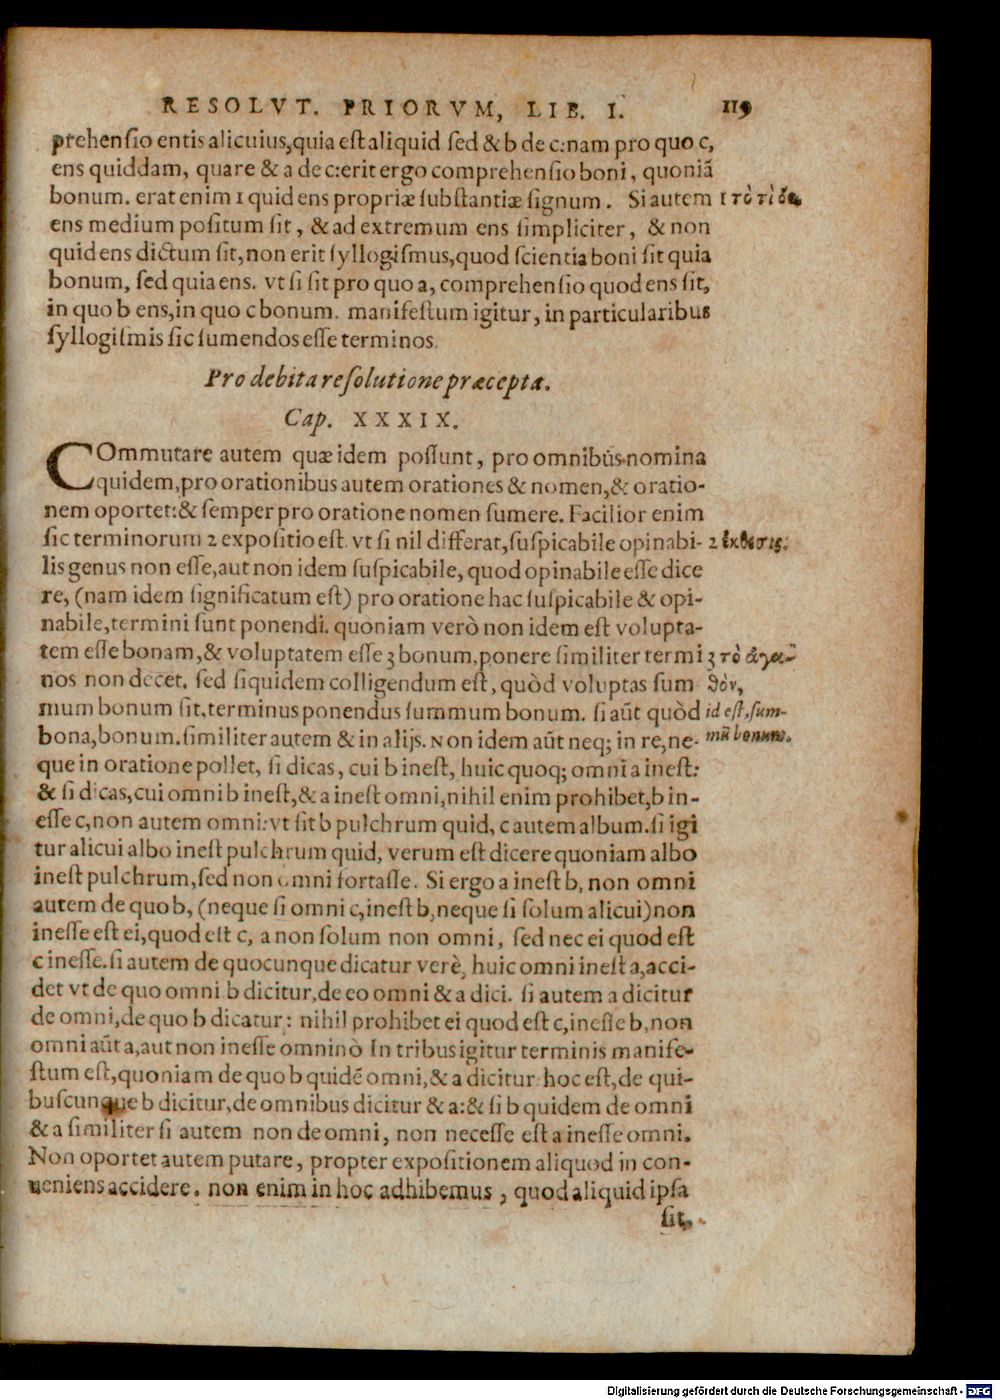 RESOLVT. PRIORVM, LIB. I. 119
prehensio entis alicuius, quia est aliquid sed & b de c: nam pro quo c,
ens quiddam, quare & a de c: erit ergo comprehensio boni, quoniã
bonum. erat enim 1 quid ens propriæ substantiæ signum. Si autem
1 τὸ τὶ
ens medium positum sit, & ad extremum ens simpliciter, & non
quid ens dictum sit, non erit syllogismus, quod scientia boni sit quia
bonum, sed quia ens. vt si sit pro quo a, comprehensio quod ens sit,
in quo b ens, in quo c bonum. manifestum igitur, in particularibus
syllogismis sic sumendos esse terminos.
Pro debita resolutione præcepta.
Cap. XXXIX.
COmmutare autem quæ idem possunt, pro omnibus nomina
quidem, pro orationibus autem orationes & nomen, & oratio-
nem oportet: & semper pro oratione nomen sumere. Facilior enim
sic terminorum 2 expositio est. vt si nil differat, suspicabile opinabi-
2 ἔκθεσις.
lis genus non esse, aut non idem suspicabile, quod opinabile esse dice
re, (nam idem significatum est) pro oratione hac suspicabile & opi-
nabile, termini sunt ponendi. quoniam verò non idem est volupta-
tem esse bonam, & voluptatem esse 3 bonum, ponere similiter termi
3 τὸ ἀγα-
nos non decet. sed siquidem colligendum est, quòd voluptas sum
θόν,
mum bonum sit, terminus ponendus summum bonum. si aũt quòd
id est, sum-
bona, bonum. similiter autem & in alijs. Non idem aũt neq; in re, ne-
mũ bonum.
que in oratione pollet, si dicas, cui b inest, huic quoq; omni a inest:
& si dicas, cui omni b inest, & a inest omni, nihil enim prohibet, b in-
esse c, non autem omni: vt sit b pulchrum quid, c autem album. si igi
tur alicui albo inest pulchrum quid, verum est dicere quoniam albo
inest pulchrum, sed non omni fortasse. Si ergo a inest b, non omni
autem de quo b, (neque si omni c, inest b, neque si solum alicui) non
inesse est ei, quod est c, a non solum non omni, sed nec ei quod est
c inesse. si autem de quocunque dicatur verè, huic omni inest a, acci-
det vt de quo omni b dicitur, de eo omni & a dici. si autem a dicitur
de omni, de quo b dicatur: nihil prohibet ei quod est c, inesse b, non
omni aũt a, aut non inesse omninò In tribus igitur terminis manife-
stum est, quoniam de quo b quidẽ omni, & a dicitur. hoc est, de qui-
buscunque b dicitur, de omnibus dicitur & a: & si b quidem de omni
& a similiter si autem non de omni, non necesse est a inesse omni.
Non oportet autem putare, propter expositionem aliquod in con-
ueniens accidere. non enim in hoc adhibemus, quod aliquid ipsa
sit,
Digitalisierung gefördert durch die Deutsche Forschungsgemeinschaft - DFG